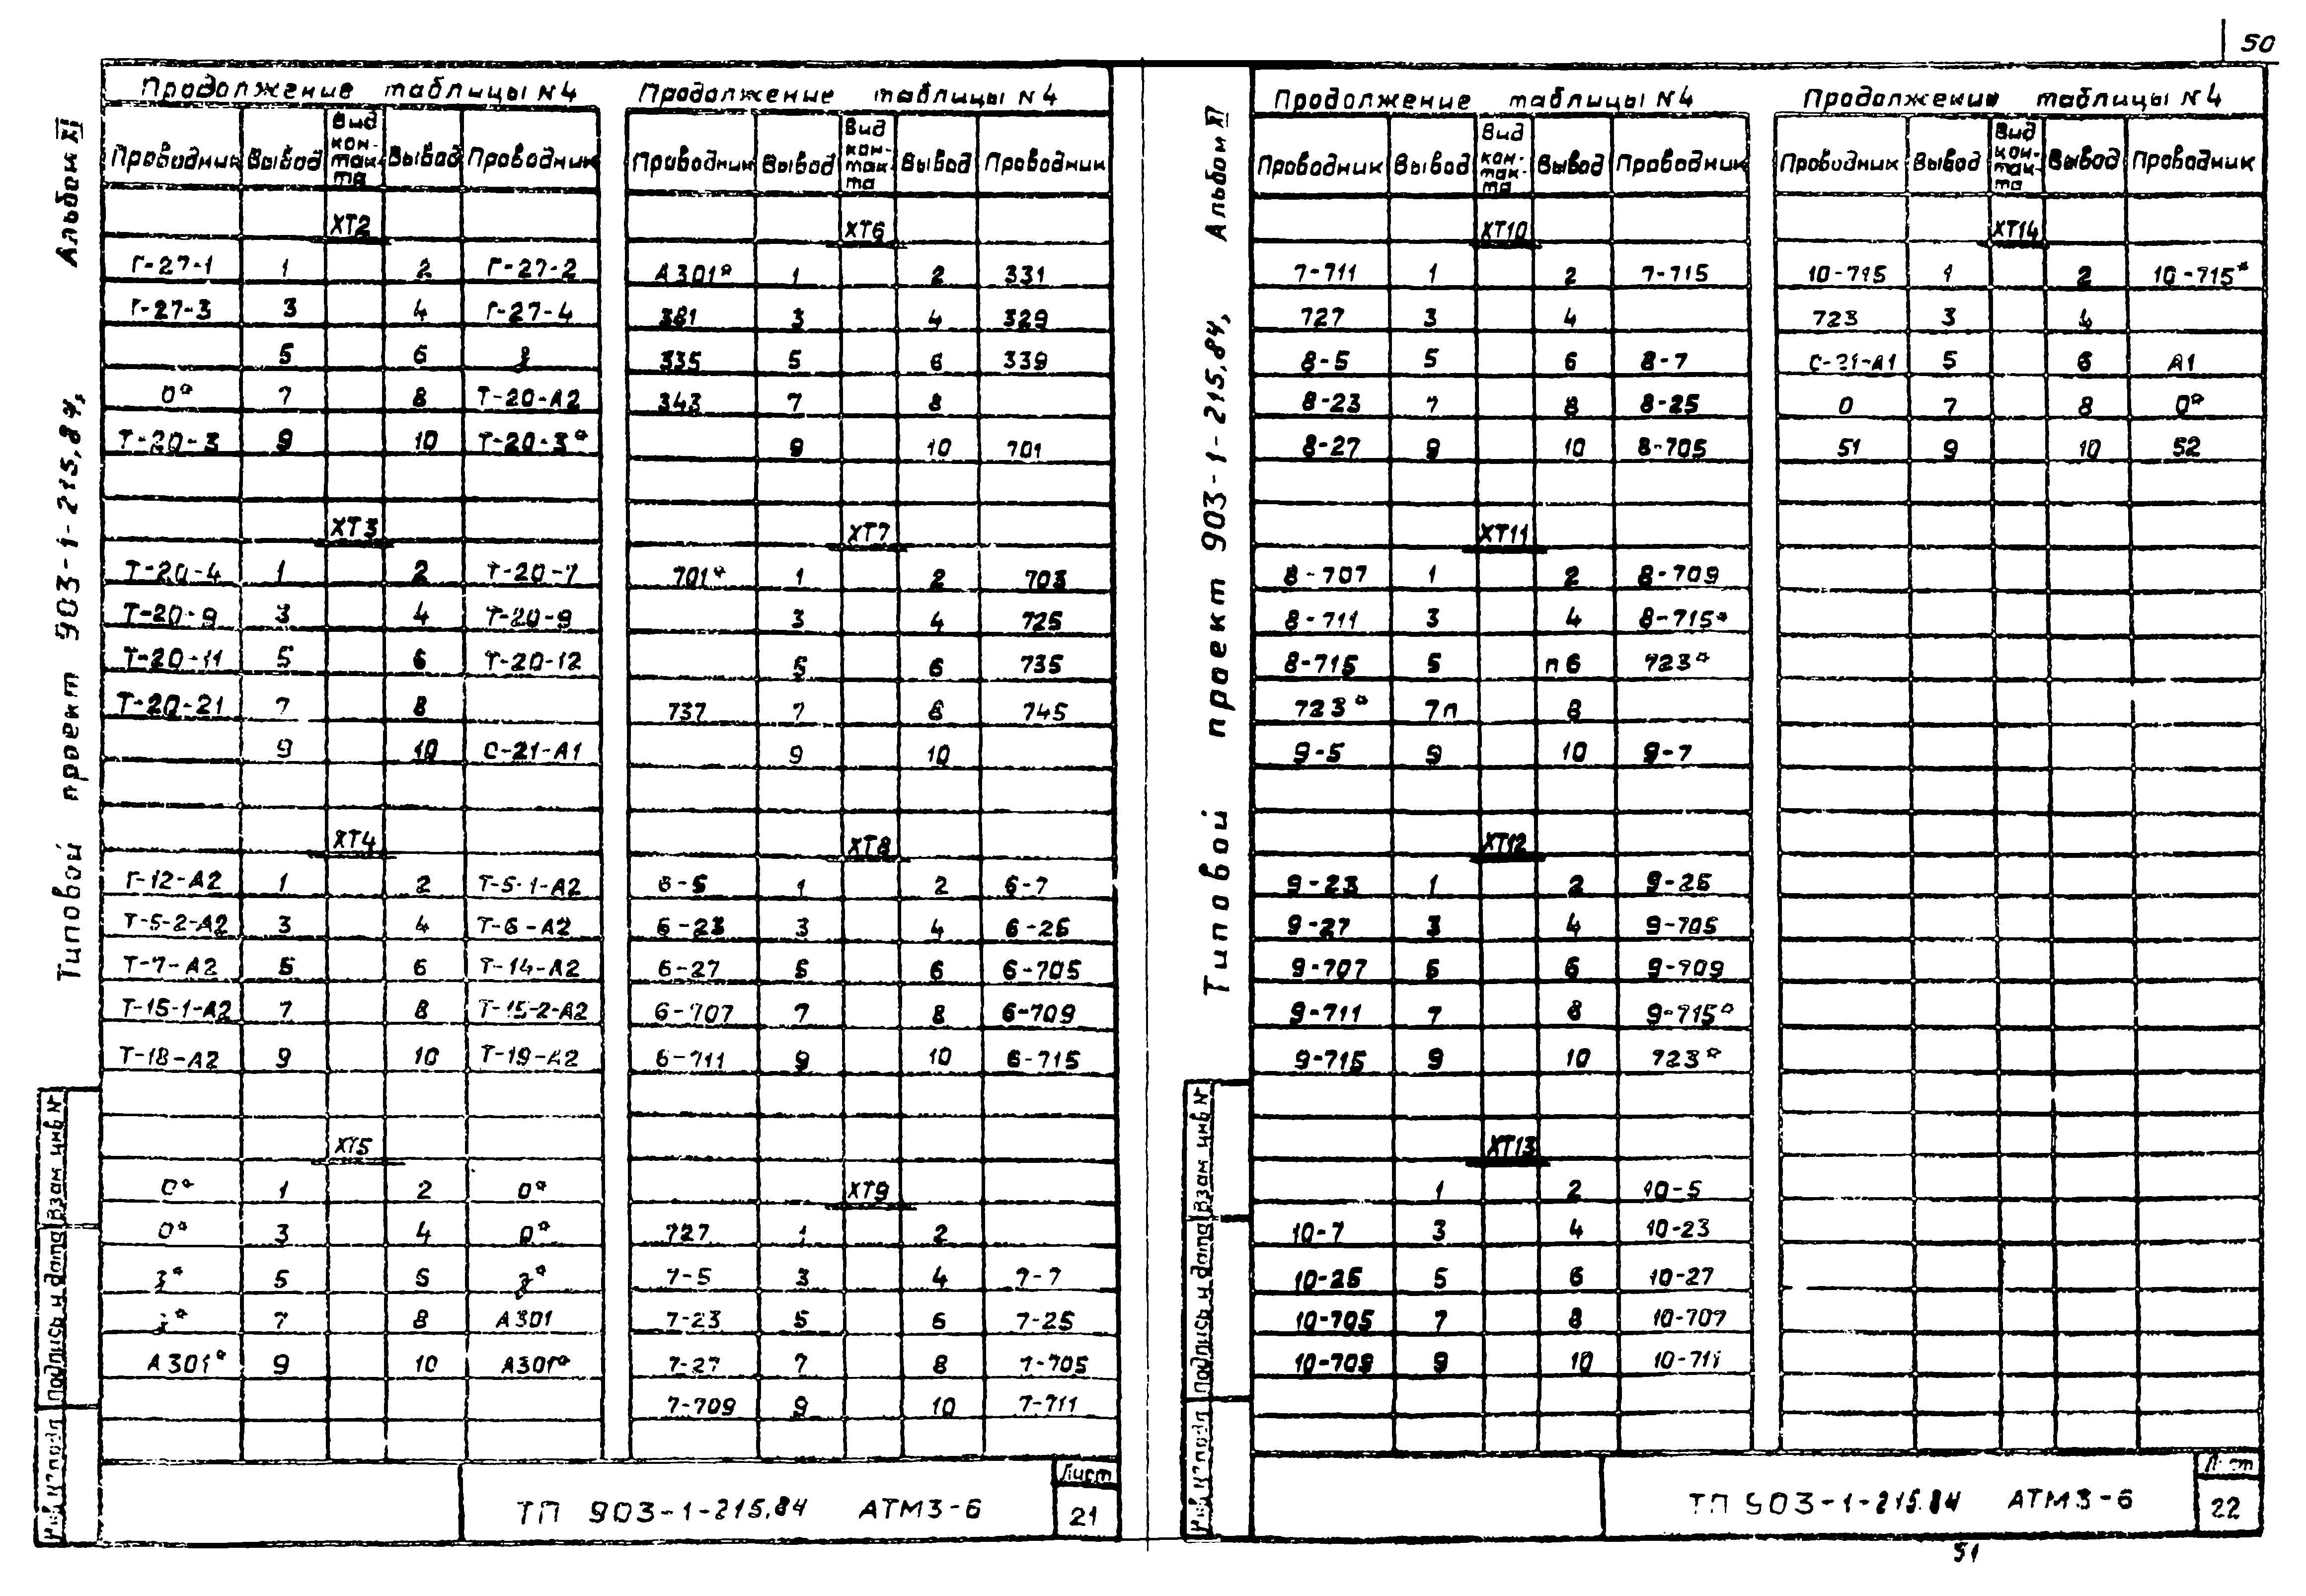 50
Альбом XI
Типовой проект 903-1-215.84,
Продолжение таблицы N4
Проводник Вывод Вид кон-так-та Вывод Проводник
XT2
Г-27-1 1 2 Г-27-2
Г-27-3 3 4 Г-27-4
5 6
0* 7 8 Т-20-А2
Т-20-3 9 10 Т-20-3*
XT3
Т-20-4 1 2 Т-20-7
Т-20-9 3 4 Т-20-9
Т-20-11 5 6 Т-20-12
Т-20-21 7 8
9 10 С-21-А1
XT4
Г-12-А2 1 2 Т-5-1-А2
Т-5-2-А2 3 4 Т-6-А2
Т-7-А2 5 6 Т-14-А2
Т-15-1-А2 7 8 Т-15-2-А2
Т-18-А2 9 10 Т-19-А2
XT5
0* 1 2 0*
0* 3 4 0*
5
7 8 А301
А301* 9 10 А301*
Продолжение таблицы N4
Проводник Вывод Вид кон-так-та Вывод Проводник
XT6
А301* 1 2 331
381 3 4 329
335 5 6 339
343 7 8
9 10 701
XT7
701* 1 2 703
3 4 725
5 6 735
737 7 8 745
9 10
XT8
6-5 1 2 6-7
6-23 3 4 6-25
6-27 5 6 6-705
6-707 7 8 6-709
6-711 9 10 6-715
XT9
727 1 2
7-5 3 4 7-7
7-23 5 6 7-25
7-27 7 8 7-705
7-709 9 10 7-711
ТП 903-1-215.84 АТМ3-6
Лист
21
Взам инв N
Подпись и дата
Альбом XI
Типовой проект 903-1-215.84,
Продолжение таблицы N4
Проводник Вывод Вид кон-так-та Вывод Проводник
XT10
7-711 1 2 7-715
727 3 4
8-5 5 6 8-7
8-23 7 8 8-25
8-27 9 10 8-705
XT11
8-707 1 2 8-709
8-711 3 4 8-715*
8-715 5 п6 723*
723* 7п 8
9-5 9 10 9-7
XT12
9-23 1 2 9-25
9-27 3 4 9-705
9-707 5 6 9-709
9-711 7 8 9-715*
9-715 9 10 723*
XT13
1 2 10-5
10-7 3 4 10-23
10-25 5 6 10-27
10-705 7 8 10-707
10-709 9 10 10-711
Продолжение таблицы N4
Проводник Вывод Вид кон-так-та Вывод Проводник
XT14
10-715 1 2 10-715*
723 3 4
С-21-А1 5 6 А1
0 7 8 0*
51 9 10 52
ТП 903-1-215.84 АТМ3-6
Лист
22
Взам инв N
Подпись и дата
51